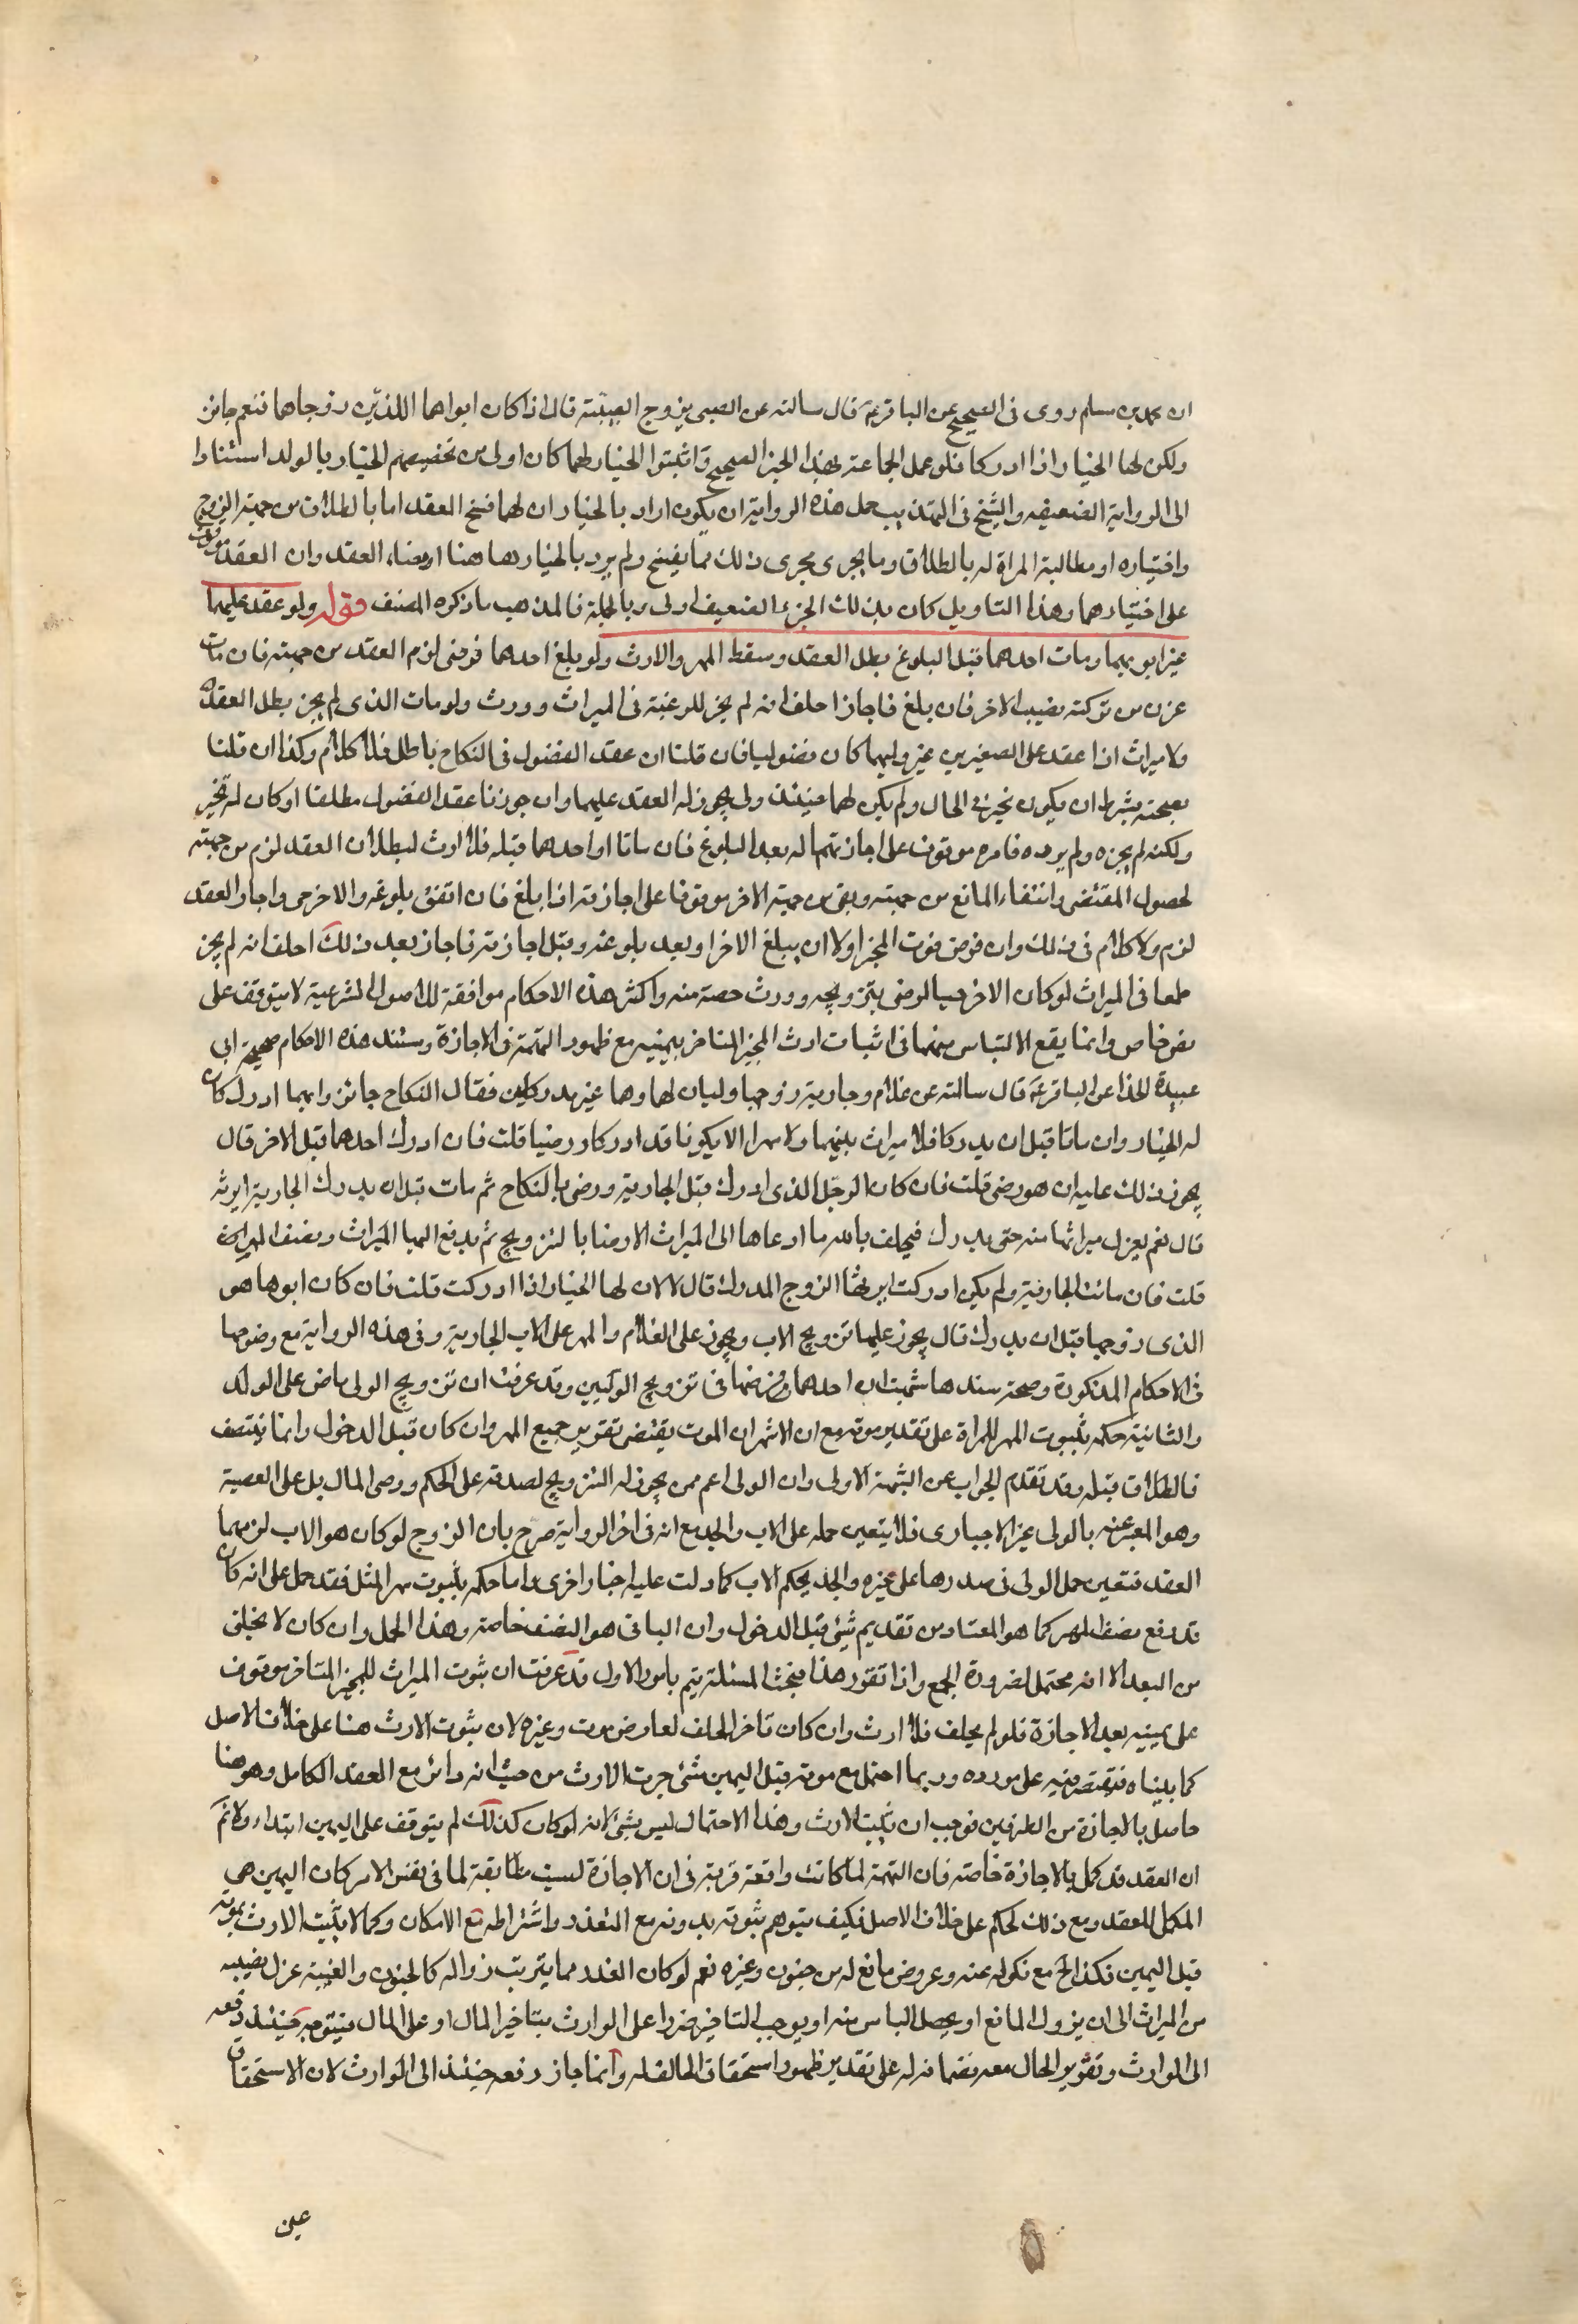 ان محمد بن مسلم روى فى الصحيح عن الباقر ع قال سالته عن الصبى يزوج الصبية قال اذا كان ابواهما اللذين زوجاهما فنعم جائز
ولكن لهما الخيار اذا ادركا فلو عمل الجماعة بهذا الخبر الصحيح واثبتوا الخيار لهما كان اولى من تخصيصهم الخيار بالولد استنادا
الى الرواية الضعيفه والشيخ فى التهذيب حمل هذه الرواية ان يكون اراد بالخيار ان لهما فسخ العقد اما بالطلاق من جهة الزوج
واختياره او مطالبة المراة له بالطلاق وما يجرى مجرى ذلك مما يفسخ ولم يرد بالخيار هاهنا امضاء العقد وان العقد موقوف
على اختيارهما وهذا التاويل كان بذلك الخبر الضعيف اولى وبالجملة فالمذهب ما ذكره المصنف قوله ولو عقد عليهما
غير ابويهما ومات احدهما قبل البلوغ بطل العقد وسقط المهر والارث ولو بلغ احدهما فرضى لزم العقد من جهته فان مات
عزل من تركته نصيب الاخر فان بلغ فاجاز احلف انه لم يجز للرغبة فى الميراث وورث ولو مات الذى لم يجز بطل العقد
ولا ميراث اذا عقد على الصغيرين غير وليهما كان فضوليا فان قلنا ان عقد الفضول فى النكاح باطل فلا كلام وكذا ان قلنا
بصحته بشرط ان يكون مجيز فى الحال ولم يكن لهما حينئذ ولى يجوز له العقد عليهما وان جوزنا عقد الفضول مطلقا او كان له مجيز
ولكنه لم يجزه ولم يرده فامره موقوف على اجازتهما له بعد البلوغ فان ماتا او احدهما قبله فلا ارث لبطلان العقد لزم من جهته
لحصول المقتضى وانتفاء المانع من جهته وبقى من جهة الاخر موقوفا على اجازته اذا بلغ فان اتفق بلوغه والاخر حى واجاز العقد
لزم ولا كلام فى ذلك وان فرض موت المجيز اولا ان يبلغ الاخر او بعد بلوغه وقبل اجازته فاجاز بعد ذلك احلف انه لم يجز
طمعا فى الميراث لو كان الاخر حيا لرضى بتزويجه وورث حصته منه واكثر هذه الاحكام موافقة للاصول الشرعية لا يتوقف على
نص خاص وانما يقع الالتباس منها فى اثبات ارث المجيز المتاخر بيمينه مع ظهور التهمة فى الاجازة ومستند هذه الاحكام صحيحة ابى
عبيدة الحذا عن الباقر ع قال سالته عن غلام وجارية زوجها وليان لهما وهما غير مدركين فقال النكاح جائز وايهما ادرك كان
له الخيار وان ماتا قبل ان يدركا فلا ميراث بينهما ولا مهر الا ان يكونا قد ادركا ورضيا قلت فان ادرك احدهما قبل الاخر قال
يجوز ذلك عليه ان هو رضى قلت فان كان الرجل الذى ادرك قبل الجارية ورضى بالنكاح ثم مات قبل ان يدرك الجارية اترثه
قال نعم يعزل ميراثها منه حتى يدرك فيحلف بالله ما ادعاها الى الميراث الا رضا بالتزويج ثم يدفع اليها الميراث ونصف المهر
قلت فان ماتت الجارية ولم يكن ادركت ايرثها الزوج المدرك قال لا لان لها الخيار اذا ادركت قلت فان كان ابوها هو
الذى زوجها قبل ان يدرك قال يجوز عليها تزويج الاب ويجوز على الغلام والمهر على الاب للجارية وفى هذه الرواية مع وضوحها
فى الاحكام المذكورة وصحة سندها شبهتان احدهما فرضها فى تزويج الوليين وقد عرفت ان تزويج الولى ماض على الولد
والثانية حكمه بثبوت المهر للمراة على تقدير موته مع ان الاشهر ان الموت يقتضى تقرير جميع المهر وان كان قبل الدخول وانما ينتصف
فالطلاق قبله وقد تقدم الجواب عن الشبهة الاولى وان الولى اعم ممن يجوز له التزويج لصدقه على الحاكم ووصى المال بل على العصبة
وهو المعبر عنه بالولى غير الاجبارى فلا يتعين حمله على الاب والجد مع انه فى اخر الرواية صرح بان الزوج لو كان هو الاب لزمهما
العقد فتعين حمل الولى فى صدرها على غيره والجد بحكم الاب كما دلت عليه اخبار اخرى واما حكمه بثبوت مهر المثل فقد حمل على انه كان
قد دفع نصف المهر كما هو المعتاد من تقديم شئ قبل الدخول وان الباقى هو النصف خاصة وهذا الحمل وان كان لا يخلى
من البعد الا انه محتمل لضرورة الجمع واذا تقرر هذا فبحث المسئلة يتم بامور الاول قد عرفت ان ثبوت الميراث للمجيز المتاخر موقوف
على يمينه بعد الاجازة فلو لم يحلف فلا ارث وان كان تاخر الحلف لعارض موت وغيره لان ثبوت الارث هنا على خلاف الاصل
كما بيناه فيقتصر فيه على مورده وربما احتمل مع موته قبل اليمين شئ جرت الارث من حيث انه دائر مع العقد الكامل وهو هنا
حاصل بالاجازة من الطرفين فوجب ان يثبت الارث وهذا الاحتمال ليس بشئ لانه لو كان كذلك لم يتوقف على اليمين ابتداء ولا نم
ان العقد قد كمل بالاجازة خاصة فان التهمة لما كانت واقعة قرينة فى ان الاجازة ليست مطابقة لما فى نفس الامر كان اليمين هى
المكمل للعقد ومع ذلك الحكم على خلاف الاصل فكيف يتوهم ثبوته بدونه مع التعذر واشتراطه مع الامكان وكما لا يثبت الارث بموته
قبل اليمين فكذا الح مع نكوله عنه وعروض مانع له من جنون وغيره نعم لو كان العذر مما يترتب زواله كالجنون والغيبة عزل نصيبه
من الميراث الى ان يزول المانع او يحصل الياس منه او يوجب التاخير ضررا على الوارث بتاخير المال او على المال فيتوجه حينئذ دفعه
الى الوارث وتقرير الحال معه بضمانه له على تقدير ظهور استحقاق الحالف له وانما جاز دفعه حينئذ الى الوارث لان الاستحقاق